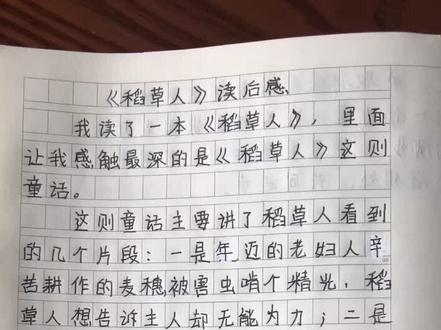 《稻草人》读后感
我读了一本《稻草人》，里面
让我感触最深的是《稻草人》这则
童话。
这则童话主要讲了稻草人看到
的几个片段：一是年迈的老妇人辛
苦耕作的麦穗被害虫啃个精光，稻
草人想告诉主人却无能为力；二是